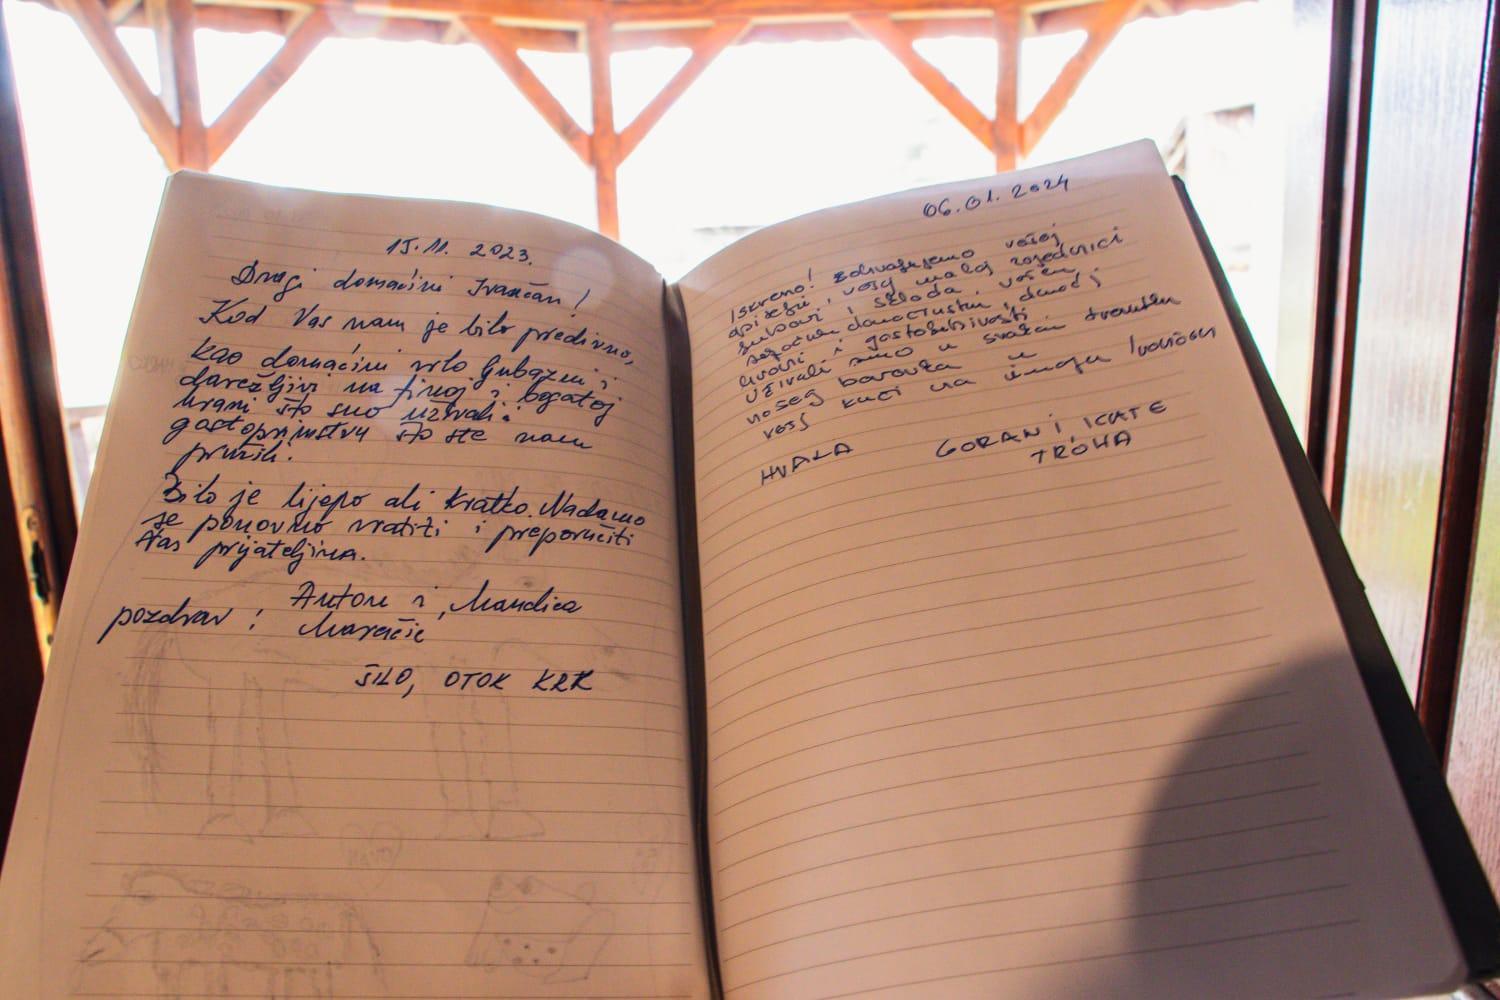 15.11. 2023.
Dragi domaćini Ivančan!
Kod Vas nam je bilo predivno,
kao domaćini vrlo ljubazni i
darežljivi na finoj i bogatoj
hrani što smo uživali i
gostoprimstvu što ste nam
pružili.
Bilo je lijepo ali kratko. Nadamo
se ponovno vratiti i preporučiti
Vas prijateljima.
pozdrav: Anton i Mandica
Maračić
ŠILO, OTOK KRK
06.01.2024
Iskreno! zahvaljujemo vašoj
obitelji i vašoj maloj zajednici
ljubavi i sklada. vašem
domaćinstvu, domaćoj
hrani i gostoljubivosti
Uživali smo u svakom trenutku
našeg boravka u
vašoj kući na imanju
HVALA GORAN I KATE
TROHA